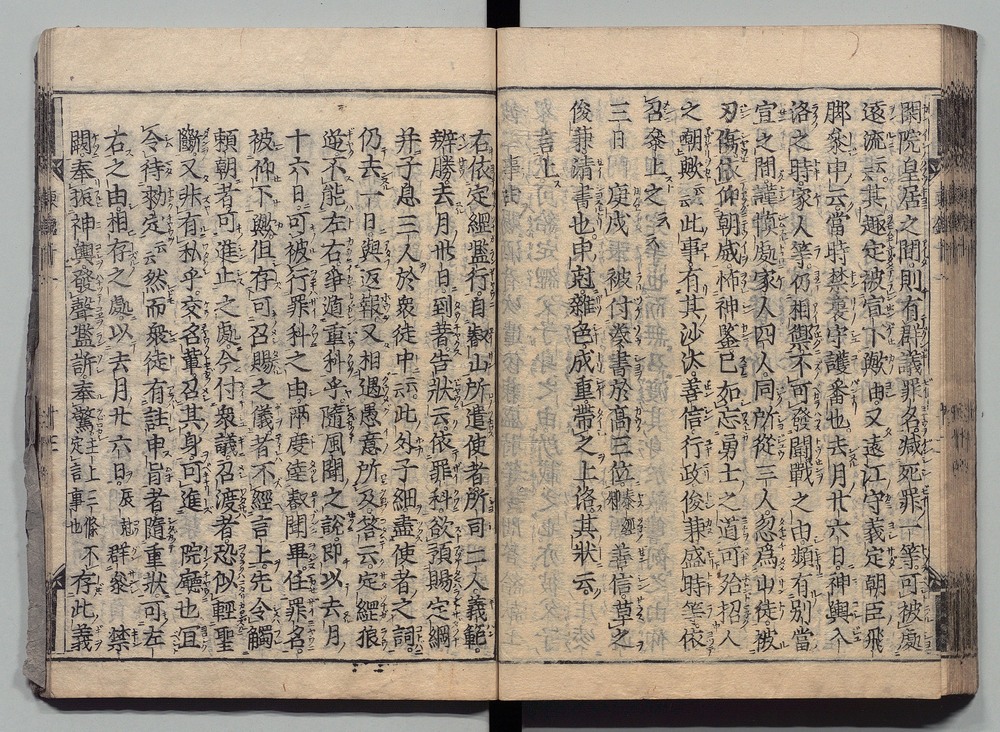 閑院皇居之間則有群議罪名減死罪一等可被處
遠流云云其趣定被宣下歟由又遠江守義定朝臣飛
脚參申云當時禁裏守護番也去月廿六日神輿入
洛之時家人等仍相與不可發鬪戰之由頻有別當
宣之間謹愼處家人四人同所從三人忽爲山徒被
刃傷依仰朝威怖神鑒已如忘勇士之道可殆招人
之嘲歟云云此事有其沙汰善信行政俊兼盛時等依
召參上之云云
三日庚戌被付奏書於高三位泰經卿善信草之
俊兼淸書也申尅雜色成重帶之上洛其狀云
右依定綱濫行自叡山所遣使者所司二人義範
辨勝去月廿日到着告狀云依罪科欲預賜定綱
幷子息三人於衆徒中云云此外子細盡使者之詞
仍去一日與返報又相遇愚意所及答云定綱狼
逆不能左右爭遁重科乎隨風聞之說即以去月
十六日可被行罪科之由兩度逹叡聞畢任罪名
被仰下歟但存可召賜之儀者不經言上先令觸
賴朝者可進止之處今付衆議召渡者恐似輕聖
斷又非有私乎交名輩召其身可進 院廳也且
令待勅定云云然而衆徒有註申旨者隨重狀可左
右之由相存之處以去月廿六日辰尅群參 禁
闕奉振神輿發聲濫訴奉驚主上三條定訖事也不存此義